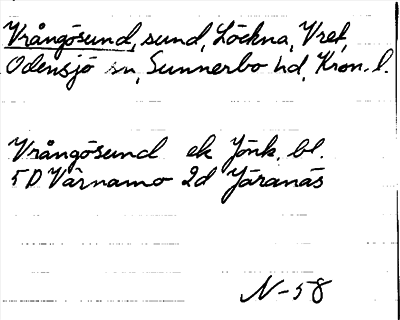 Vrångösund, sund, Löckna, Vret,
Odensjö sn, Sunnerbo hd, Kron. l.
Vrångösund ek Jönk. bl.
5D Värnamo 2d Järanäs
N-58